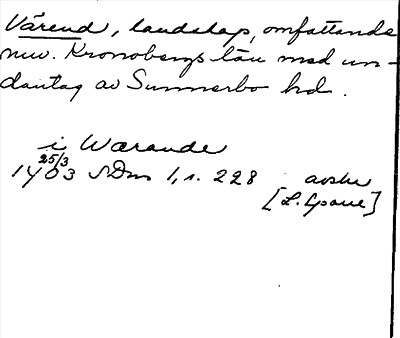 Värend, landskap, omfattande
nuv. Kronobergs län med un-
dantag av Sunnerbo hd.
i Wærande
25/3
1403 SDns 1, s. 228 avskr
[L. Spare]